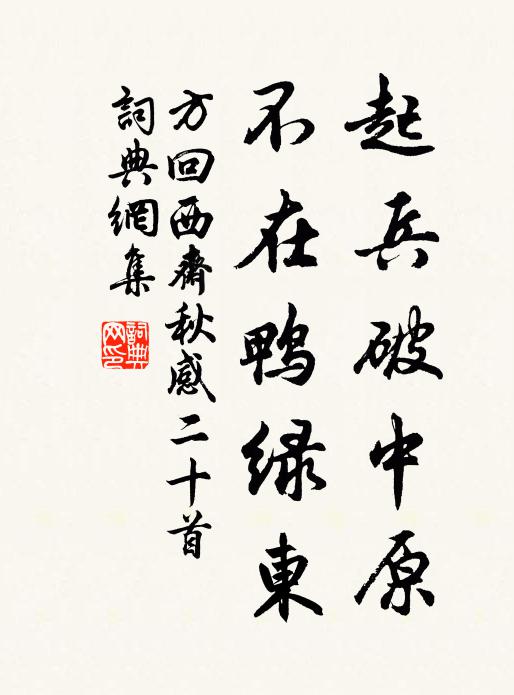 起兵破中原
不在鸭绿東
方回西齋秋感二十首
詞典網集
詞典
网印